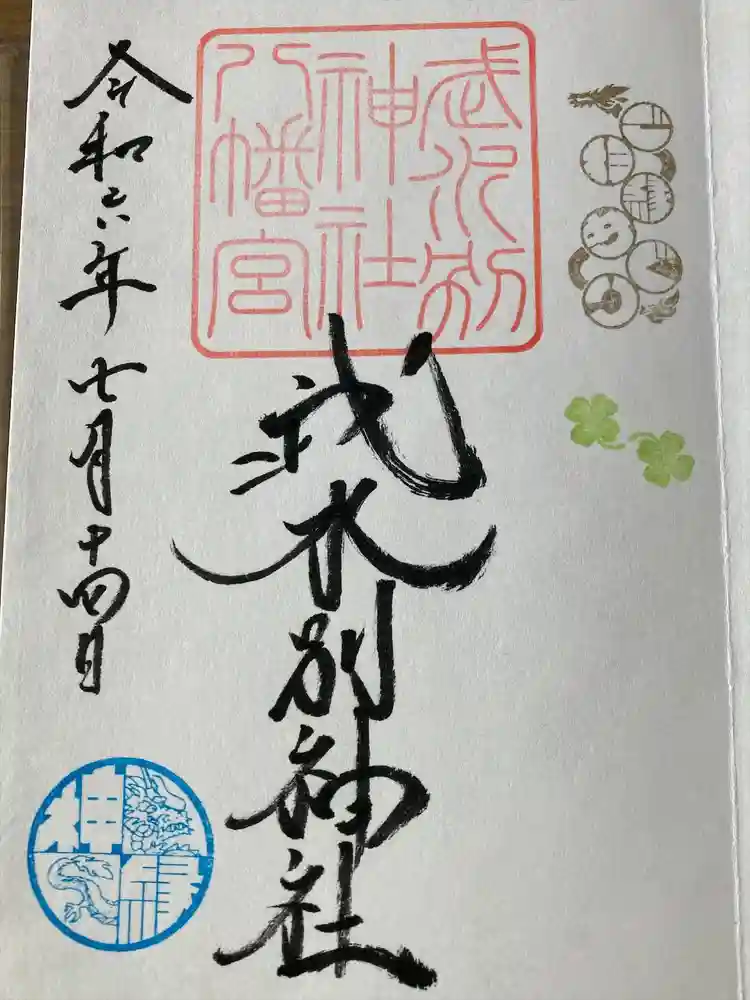 武水別
神社
八幡宮
武水別神社
令和六年七月十四日
神